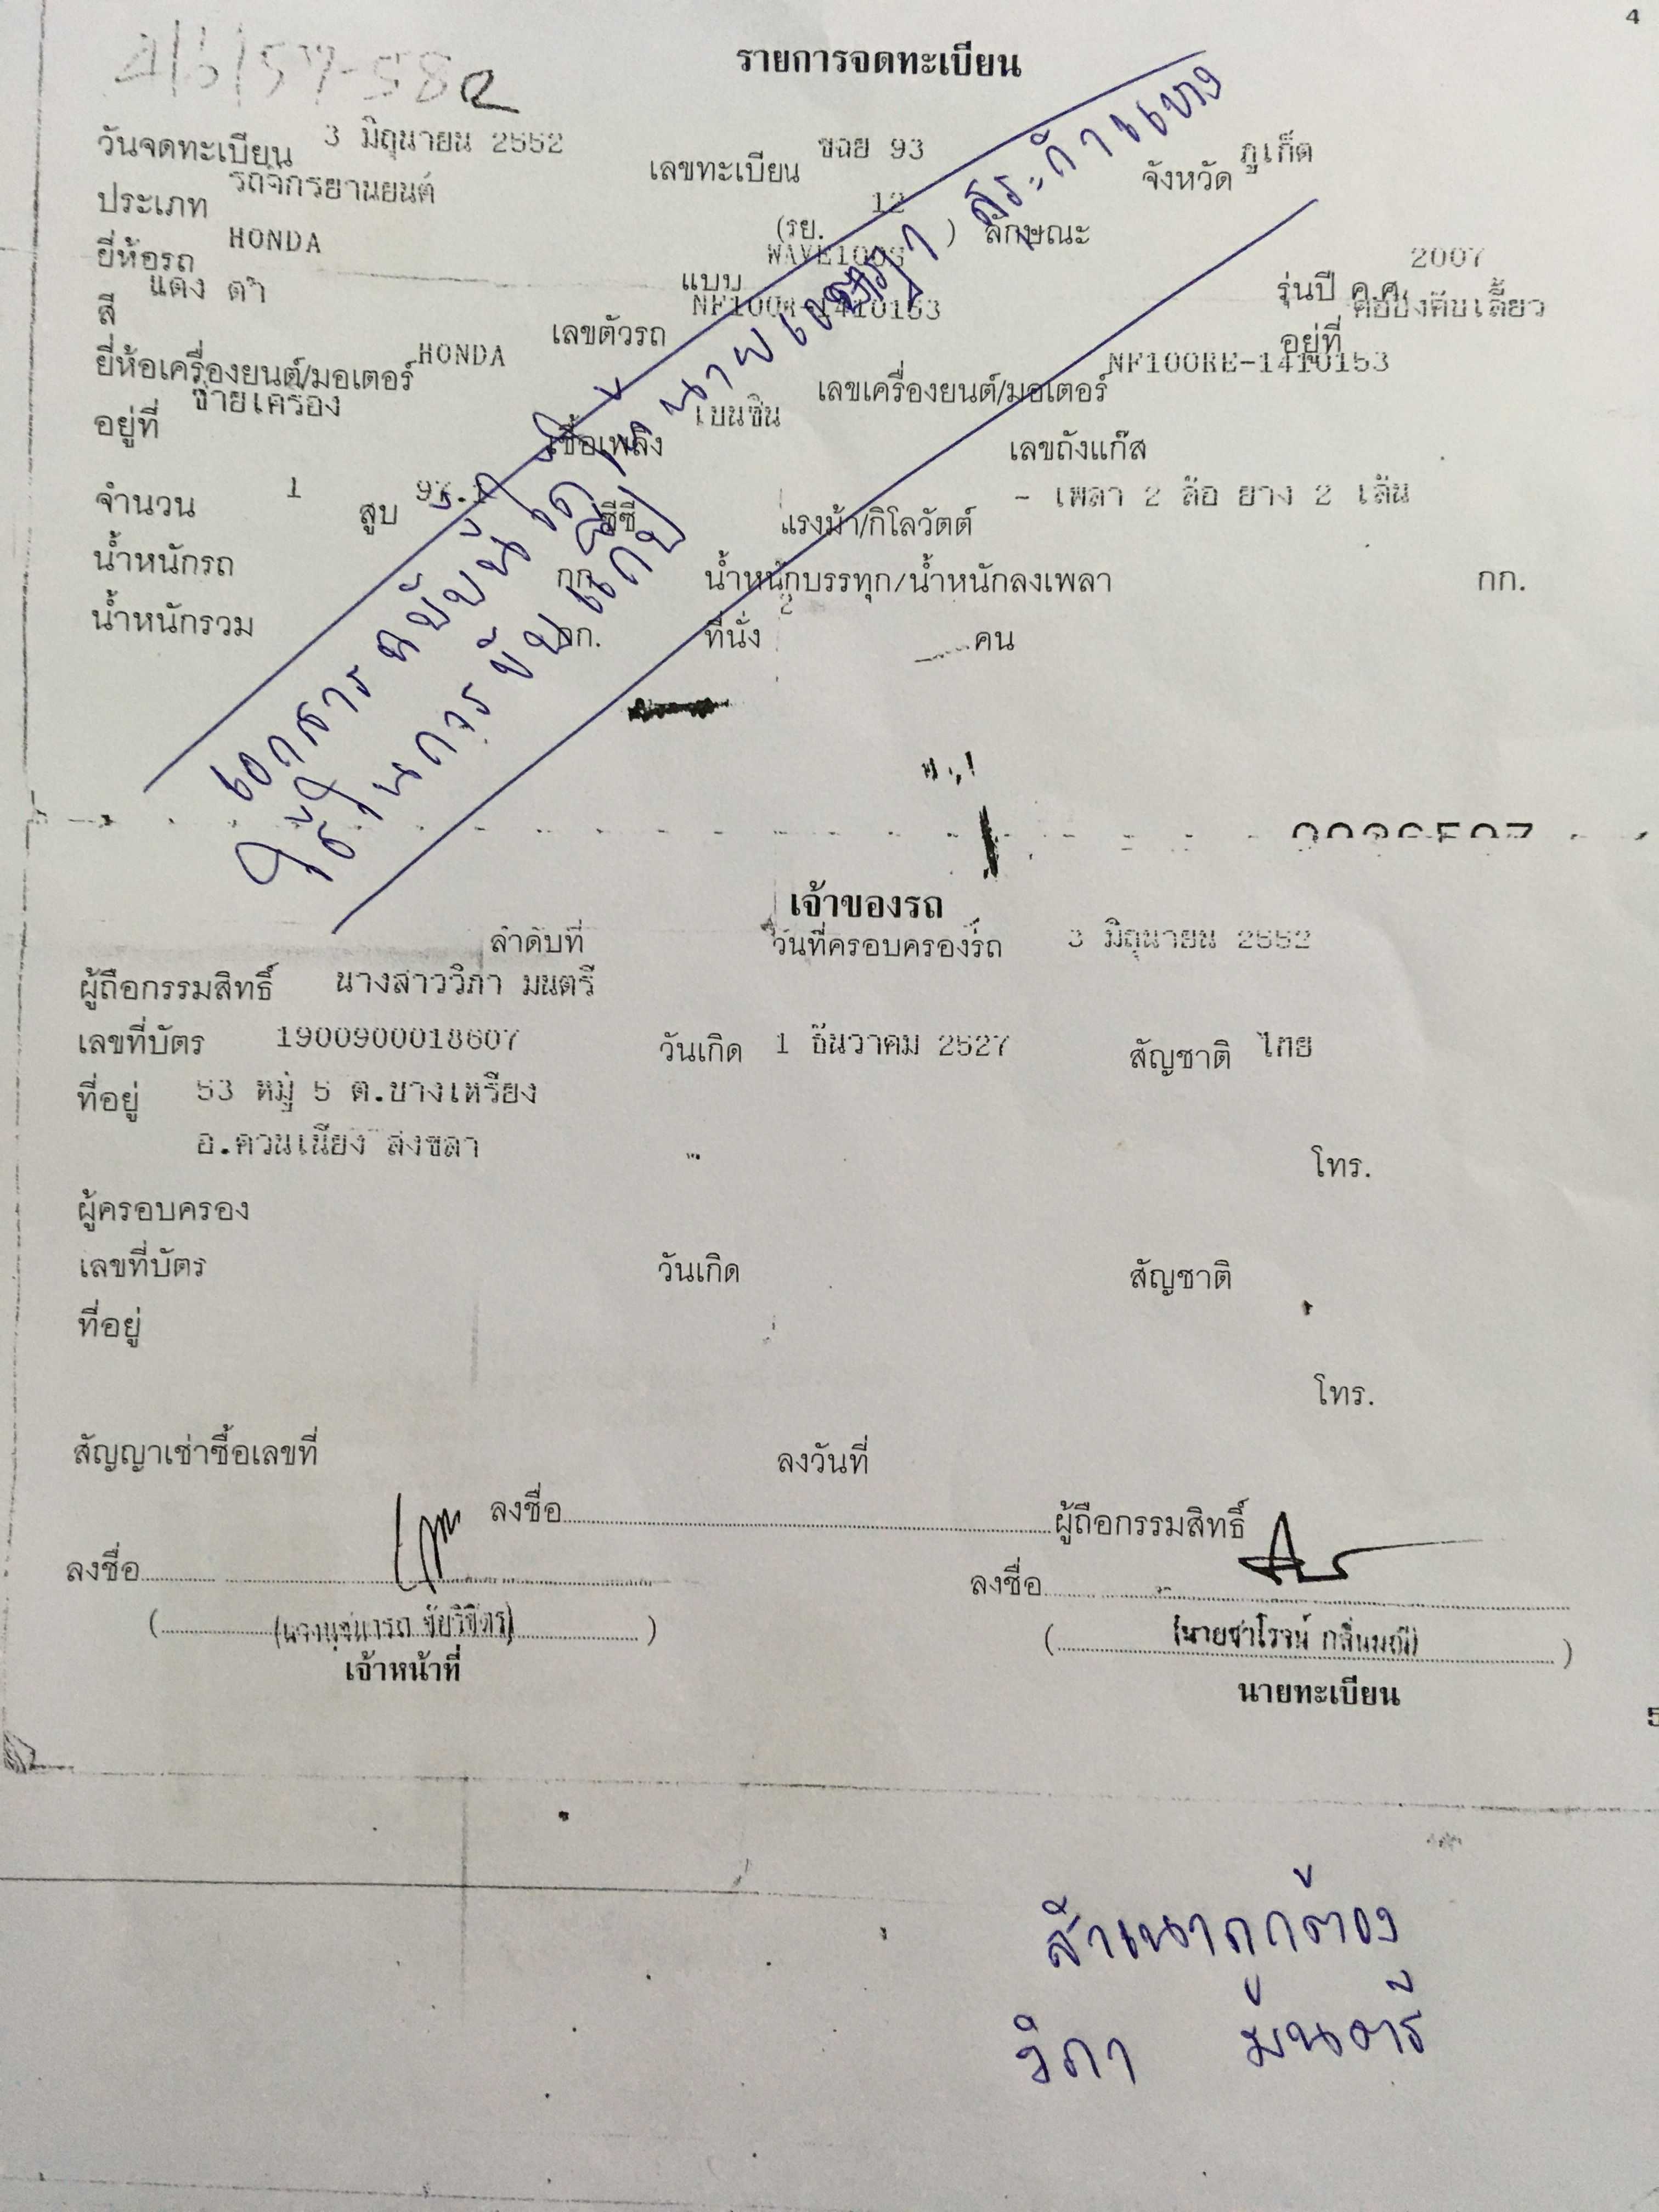 4
รายการจดทะเบียน
วันจดทะเบียน 3 มิถุนายน 2552 เลขทะเบียน ขฉย 93 จังหวัด ภูเก็ต
ประเภท รถจักรยานยนต์ (รย. 12 ) ลักษณะ
ยี่ห้อรถ HONDA แบบ WAVE100S รุ่นปี ค.ศ. 2007
สี แดง ดำ เลขตัวรถ NF100R-1410153 อยู่ที่ คอบังคับเลี้ยว
ยี่ห้อเครื่องยนต์/มอเตอร์ HONDA เลขเครื่องยนต์/มอเตอร์ NF100RE-1410153
อยู่ที่ ซ้ายเครื่อง เชื้อเพลิง เบนซิน เลขถังแก๊ส
จำนวน 1 สูบ ซีซี แรงม้า/กิโลวัตต์ - เพลา 2 ล้อ ยาง 2 เส้น
น้ำหนักรถ กก. น้ำหนักบรรทุก/น้ำหนักลงเพลา กก.
น้ำหนักรวม กก. ที่นั่ง 2 คน
เอกสารฉบับนี้
ใช้ในการ
เจ้าของรถ
ลำดับที่ วันที่ครอบครองรถ 3 มิถุนายน 2552
ผู้ถือกรรมสิทธิ์ นางสาววิภา มนตรี
เลขที่บัตร 1900900018607 วันเกิด 1 ธันวาคม 2527 สัญชาติ ไทย
ที่อยู่ 53 หมู่ 5 ต.บางเหรียง
อ.ควนเนียง สงขลา
โทร.
ผู้ครอบครอง
เลขที่บัตร วันเกิด สัญชาติ
ที่อยู่
โทร.
สัญญาเช่าซื้อเลขที่ ลงวันที่
ลงชื่อ ผู้ถือกรรมสิทธิ์
ลงชื่อ ลงชื่อ
เจ้าหน้าที่ นายทะเบียน
5
สำเนาถูกต้อง
วิภา มนตรี